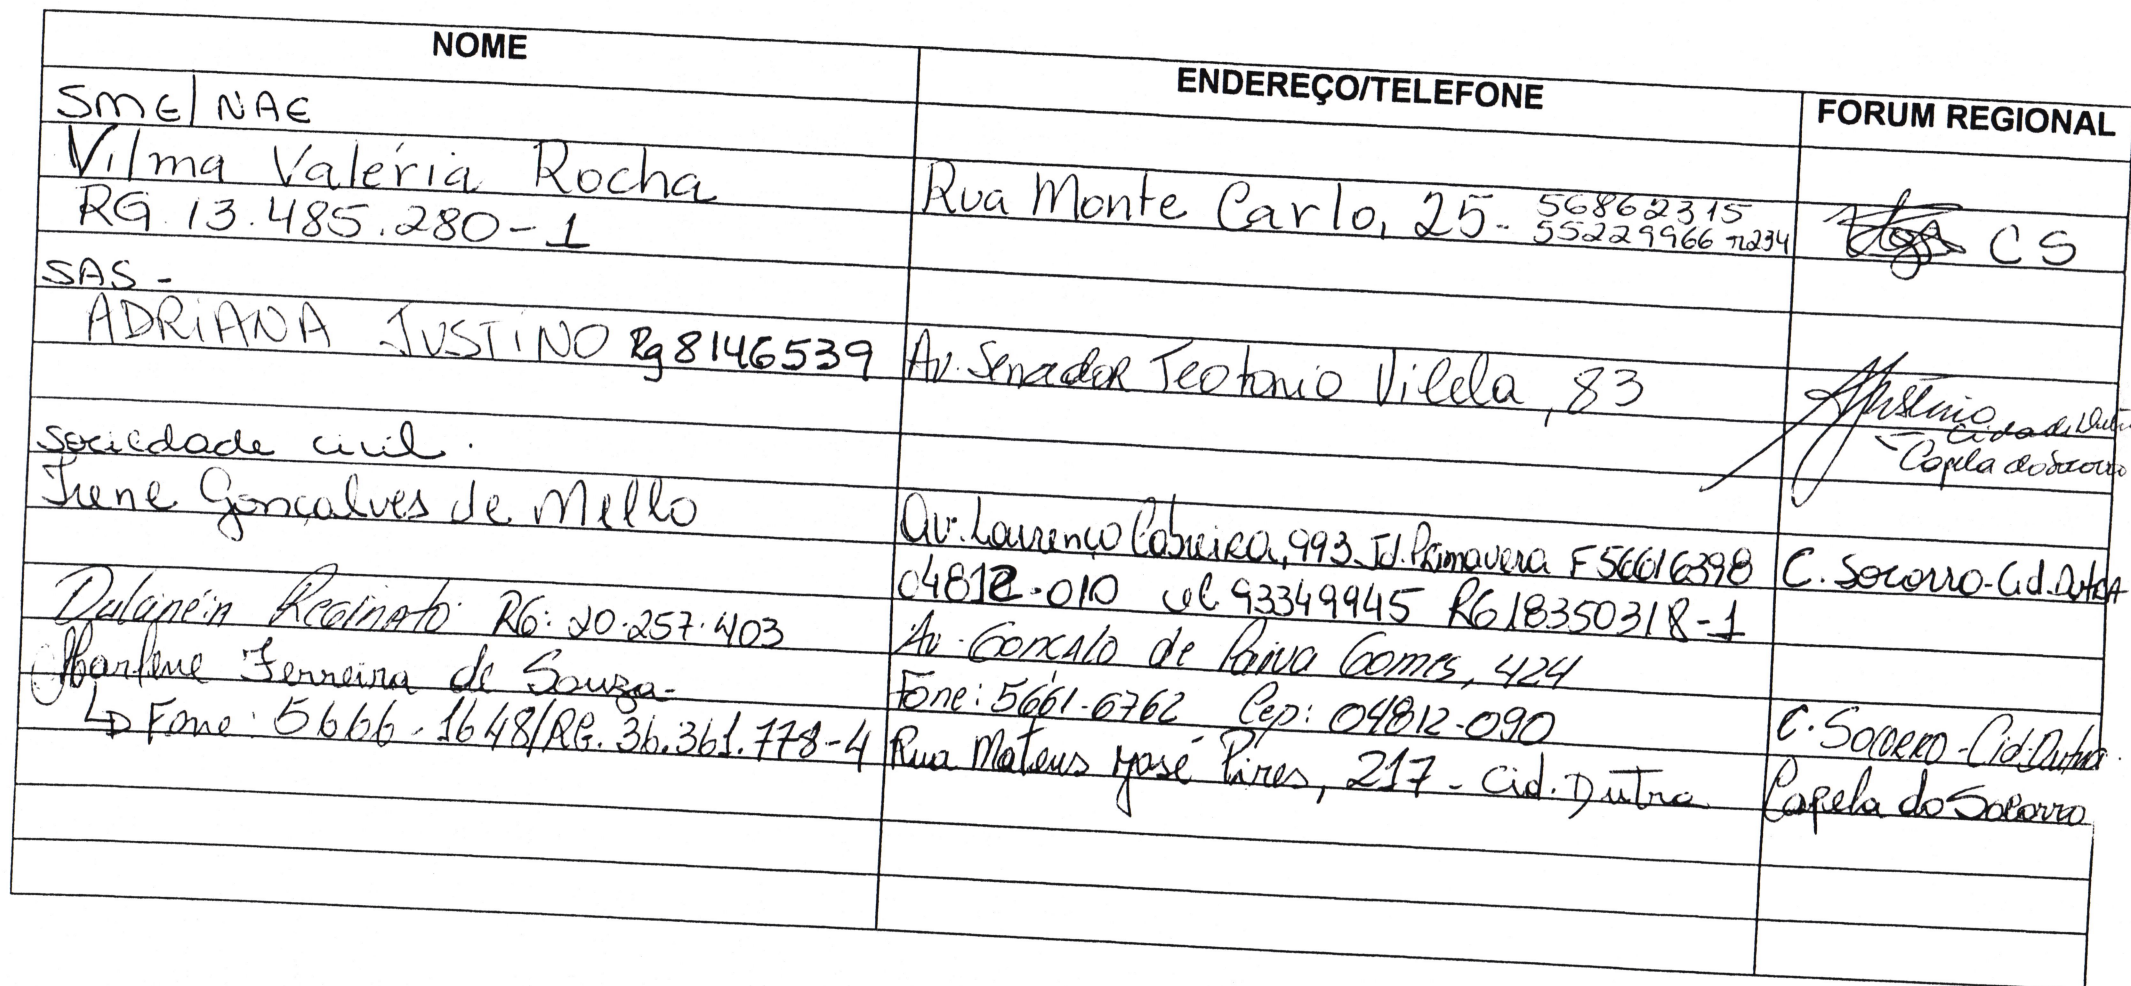 NOME ENDEREÇO/TELEFONE FORUM REGIONAL
SME/NAE
Vilma Valéria Rocha
RG 13.485.280-1
Rua Monte Carlo, 25- 56862315
55229966 r234
CS
SAS -
ADRIANA JUSTINO Rg 8146539
Av. Senador Teotonio Vilela, 83
Justino
Cidade Dutra
Capela do Socorro
Sociedade civil.
Irene Gonçalves de Mello
Av. Lourenço Cabreira, 993 Jd. Primavera F 56616398
C. Socorro-Cid. Dutra
04812-010 cel 93349945 RG 18350318-1
Dulcinéia Reginato RG: 20.257.403
Av. Gonçalo de Paiva Gomes, 424
Fone: 5661-6762 Cep: 04812-090
C. Socorro-Cid. Dutra.
Marlene Ferreira de Souza-
Fone: 5666-1648/RG. 36.361.778-4
Rua Mateus José Pires, 217 - Cid. Dutra
Capela do Socorro